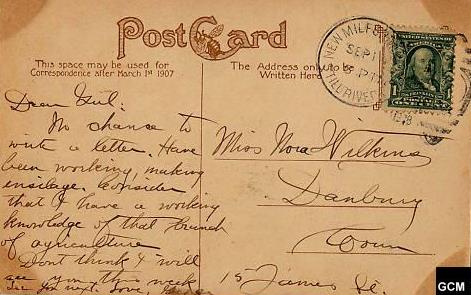 Post Card
This space may be used for
Correspondence after March 1st 1907
The Address only to be
Written Here
NEW MILFORD
SEP 1
STILL RIVER
1
Dear Girl:
No chance to
write a letter. Have
been working, making
ensilage. Consider
that I have a working
knowledge of that branch
of agriculture
Dont think I will
see you this week
Miss Nora Wilkins
Danbury
Conn
15 James St.
GCM